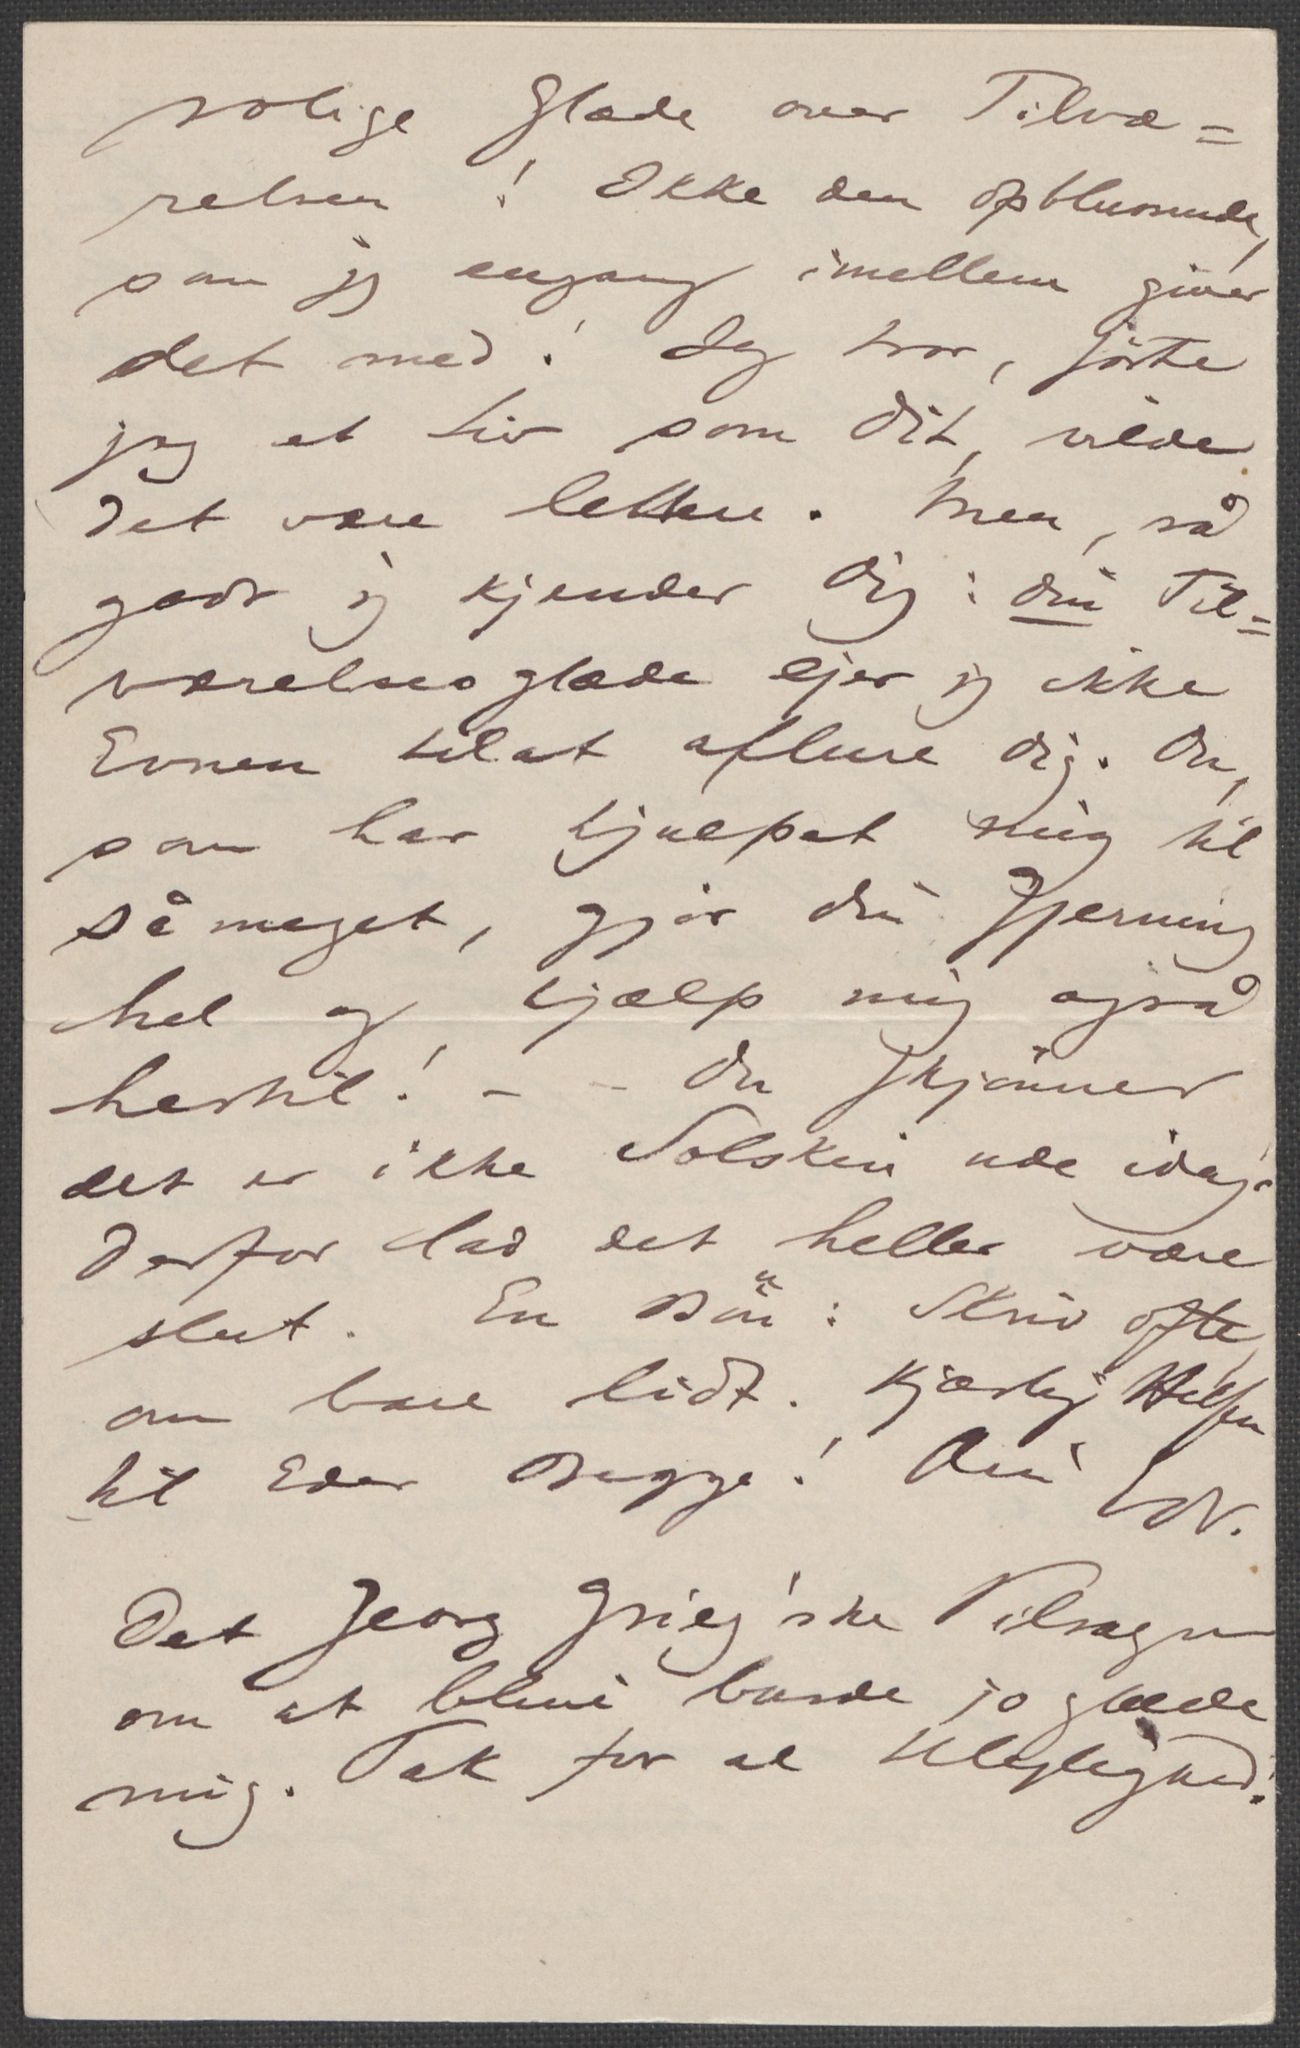 rolige Glæde over Tilvæ=
relsen! Ikke den opblussende,
som jeg engang imellem giver
det med! Jeg tror, førte
jeg et Liv som Dit, vilde
det være lettere. Men, så
godt jeg kjender Dig: din Til=
værelsesglæde ejer jeg ikke
Evnen tilat aflure Dig. Du,
som har hjulpet mig til
såmeget, gjør din Gjerning
hel og hjælp mig også
hertil! – – Du skjønner
det er ikke Solskin ude idag.
Derfor lad det heller være
slut. En Bøn: Skriv ofte,
om bare lidt. Kjærlig Hilsen
til Eder Begge! Din Edv.
Det Georg Grieg'ske Tilsagn
om at blive burde jo glæde
mig. Tak for al Uleylighed!